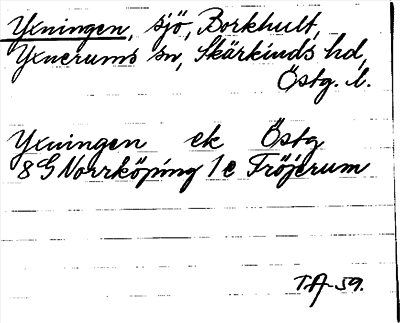 Yxningen, sjö, Borkhult,
Yxnerums sn, Skärkinds hd,
Östg. l.
Yxningen ek Östg
8G Norrköping 1e Fröjerum
T.A-59.